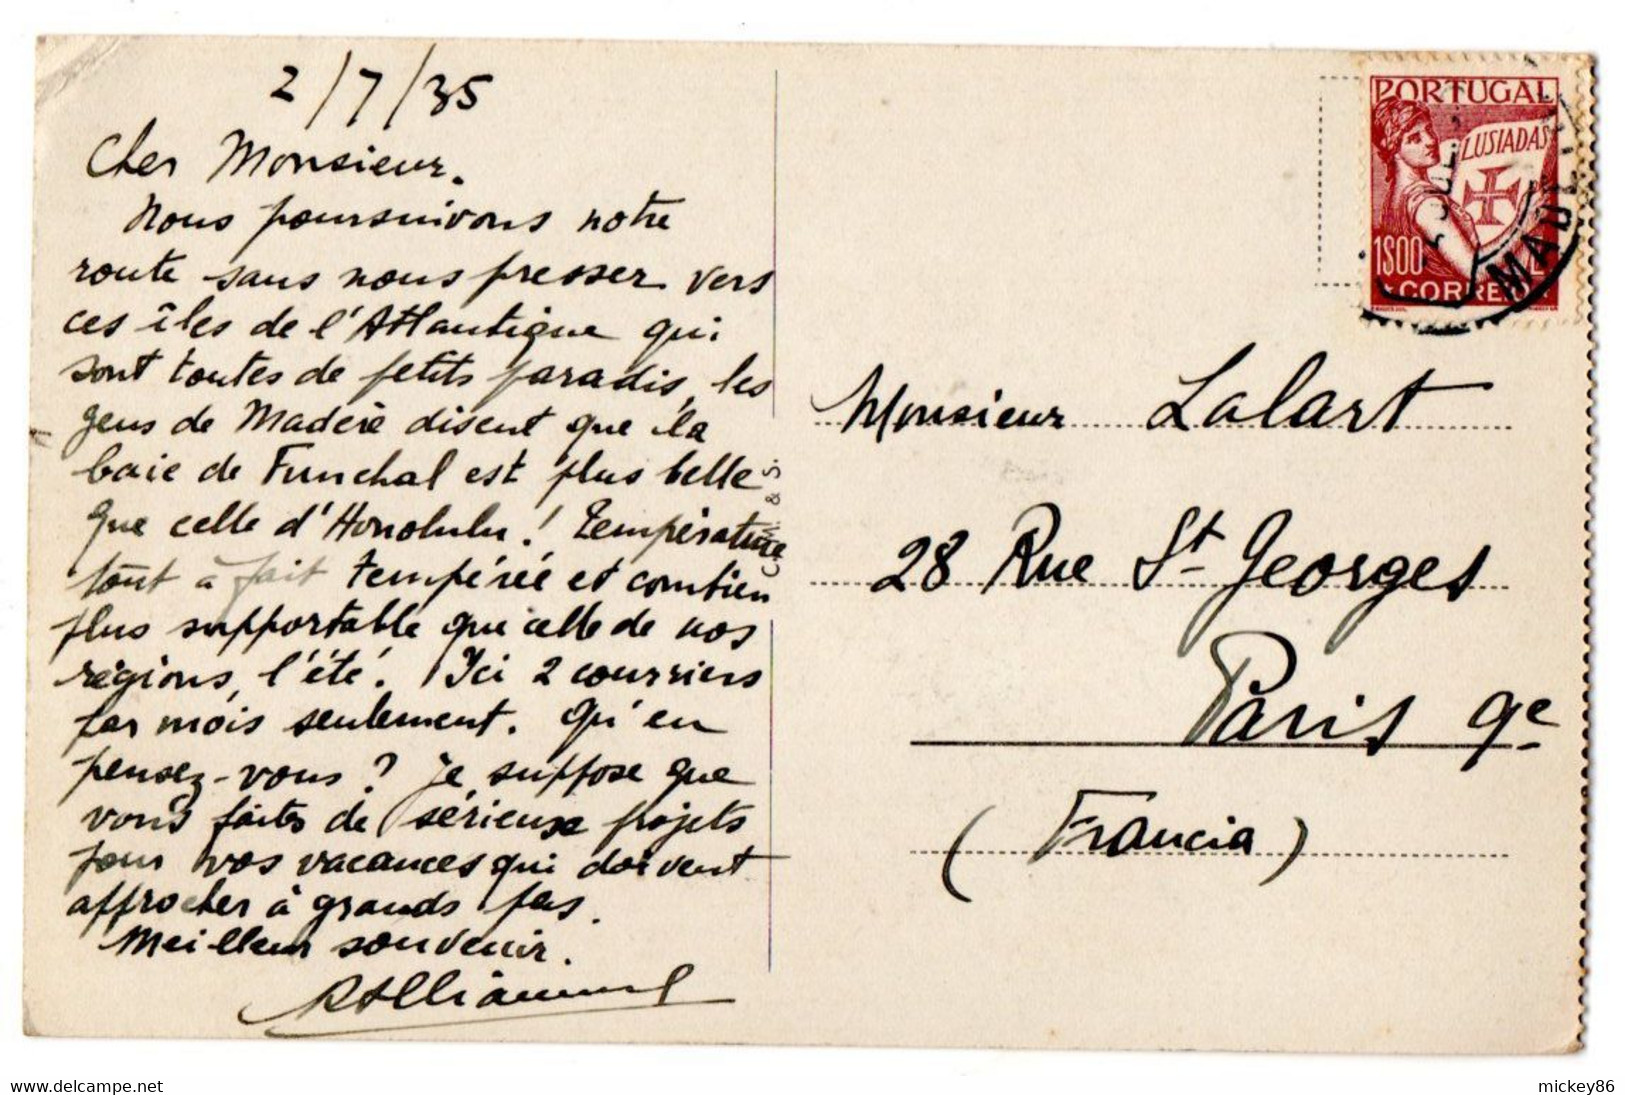 2/7/35
Cher Monsieur.
Nous poursuivons notre
route sans nous presser vers
ces îles de l'Atlantique qui
sont toutes de petits paradis, les
gens de Madère disent que la
baie de Funchal est plus belle
que celle d'Honolulu! Température
tout à fait tempérée et combien
plus supportable que celle de nos
régions, l'été. Ici 2 courriers
par mois seulement. Qu'en
pensez-vous? Je suppose que
vous faites de sérieux projets
pour vos vacances qui doivent
approcher à grands pas.
Meilleur souvenir.
PORTUGAL
LUSIADAS
1$00
CORREIO
MADE
Monsieur Lalart
28 Rue St Georges
Paris 9e
(Francia)
delcampe.net
mickey86